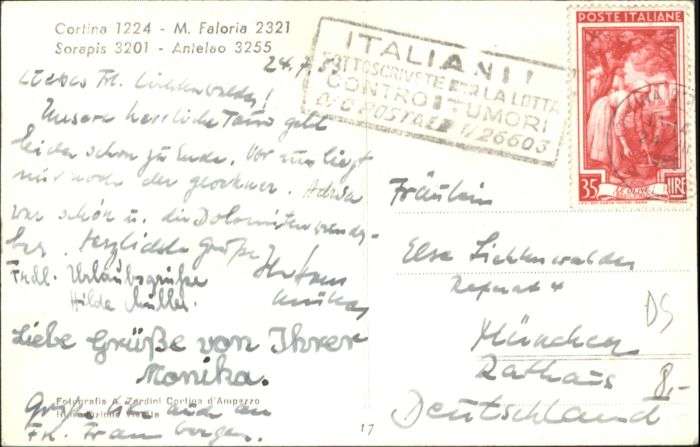 Cortina 1224 - M. Faloria 2321
Sorapis 3201 - Antelao 3255
24.7.
Liebes Frl. Lichtenwalder!
Unsere herrliche Tour geht
leider schon zu Ende. Vor uns liegt
nur noch der Glockner. Adria
war schön u. die Dolomiten
Herzlichste Grüße
Frdl. Urlaubsgrüße
Hilde Müller.
Liebe Grüße von Ihrer
Monika.
Fotografia A. Zardini Cortina d'Ampezzo
Grüße Sie auch an
Frl.
17
ITALIANI!
SOTTOSCRIVETE PER LA LOTTA
CONTRO I TUMORI
C/C POSTALE 1/26603
POSTE ITALIANE
35 LIRE
Fräulein
Else Lichtenwalder
Referat 4
München
Rathaus
Deutschland
DS
8,-